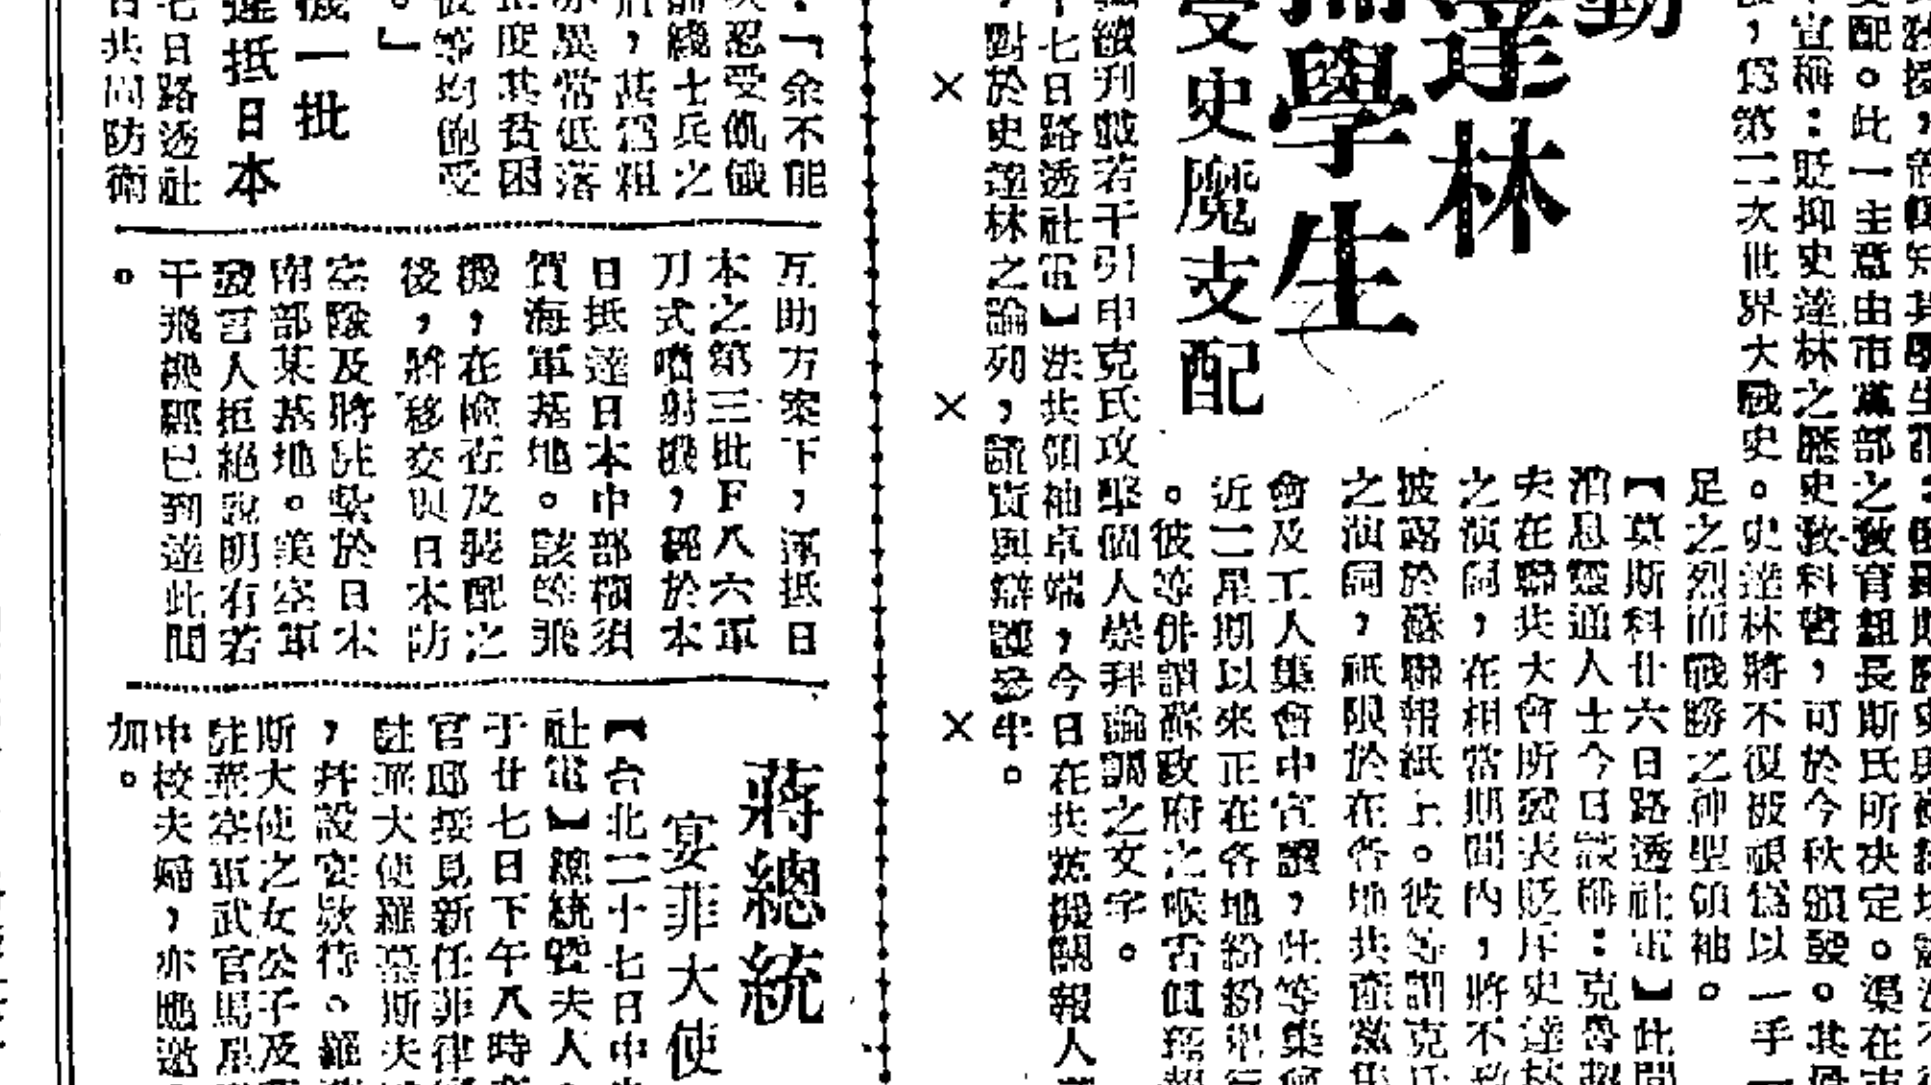 配。此一主意由市黨部之敎育組長斯氏所决定。渠在
宣稱:貶抑史達林之歷史敎科書,可於今秋頒發。其
,爲第二次世界大戰史。史達林將不復被視爲以一手一
足之烈而戰勝之神聖領袖。
動
達林
學生
受史魔支配
【莫斯科廿六日路透社電】此間
消息靈通人士今日談稱:克魯
夫在聯共大會所發表貶斥史達林
之演詞,在相當期間內,將不致
披露於蘇聯報紙上。彼等謂克氏
之演詞,祇限於在各地共產黨集
會及工人集會中宣讀,此等集會
近二星期以來正在各地紛紛舉行
。彼等併謂蘇政府之喉舌眞理報
繼續刊載若干引申克氏攻擊個人崇拜論調之文字。
十七日路透社電】法共領袖卓端,今日在共黨機關報人
,對於史達林之論列,譴責與辯護參半。
× × ×
:「余不能
忍受飢餓
士兵之
,甚爲粗
亦異常低落
度其貧困
彼等均飽受
。」
機一批
達抵日本
七日路透社
共同防衛
互助方案下,運抵日
本之第三批F八六軍
刀式噴射機,經於本
日抵達日本中部橫須
賀海軍基地。該等飛
機,在檢查及裝配之
後,將移交與日本防
空隊及將駐紮於日本
南部某基地。美空軍
發言人拒絕說明有若
干飛機經已到達此間
。
蔣總統
宴菲大使
【台北二十七日中央
社電】總統暨夫人,
于廿七日下午八時在
官邸接見新任菲律賓
駐華大使羅慕斯夫
,幷設宴欵待。羅
斯大使之女公子及
駐華空軍武官馬
中校夫婦,亦應邀
加。